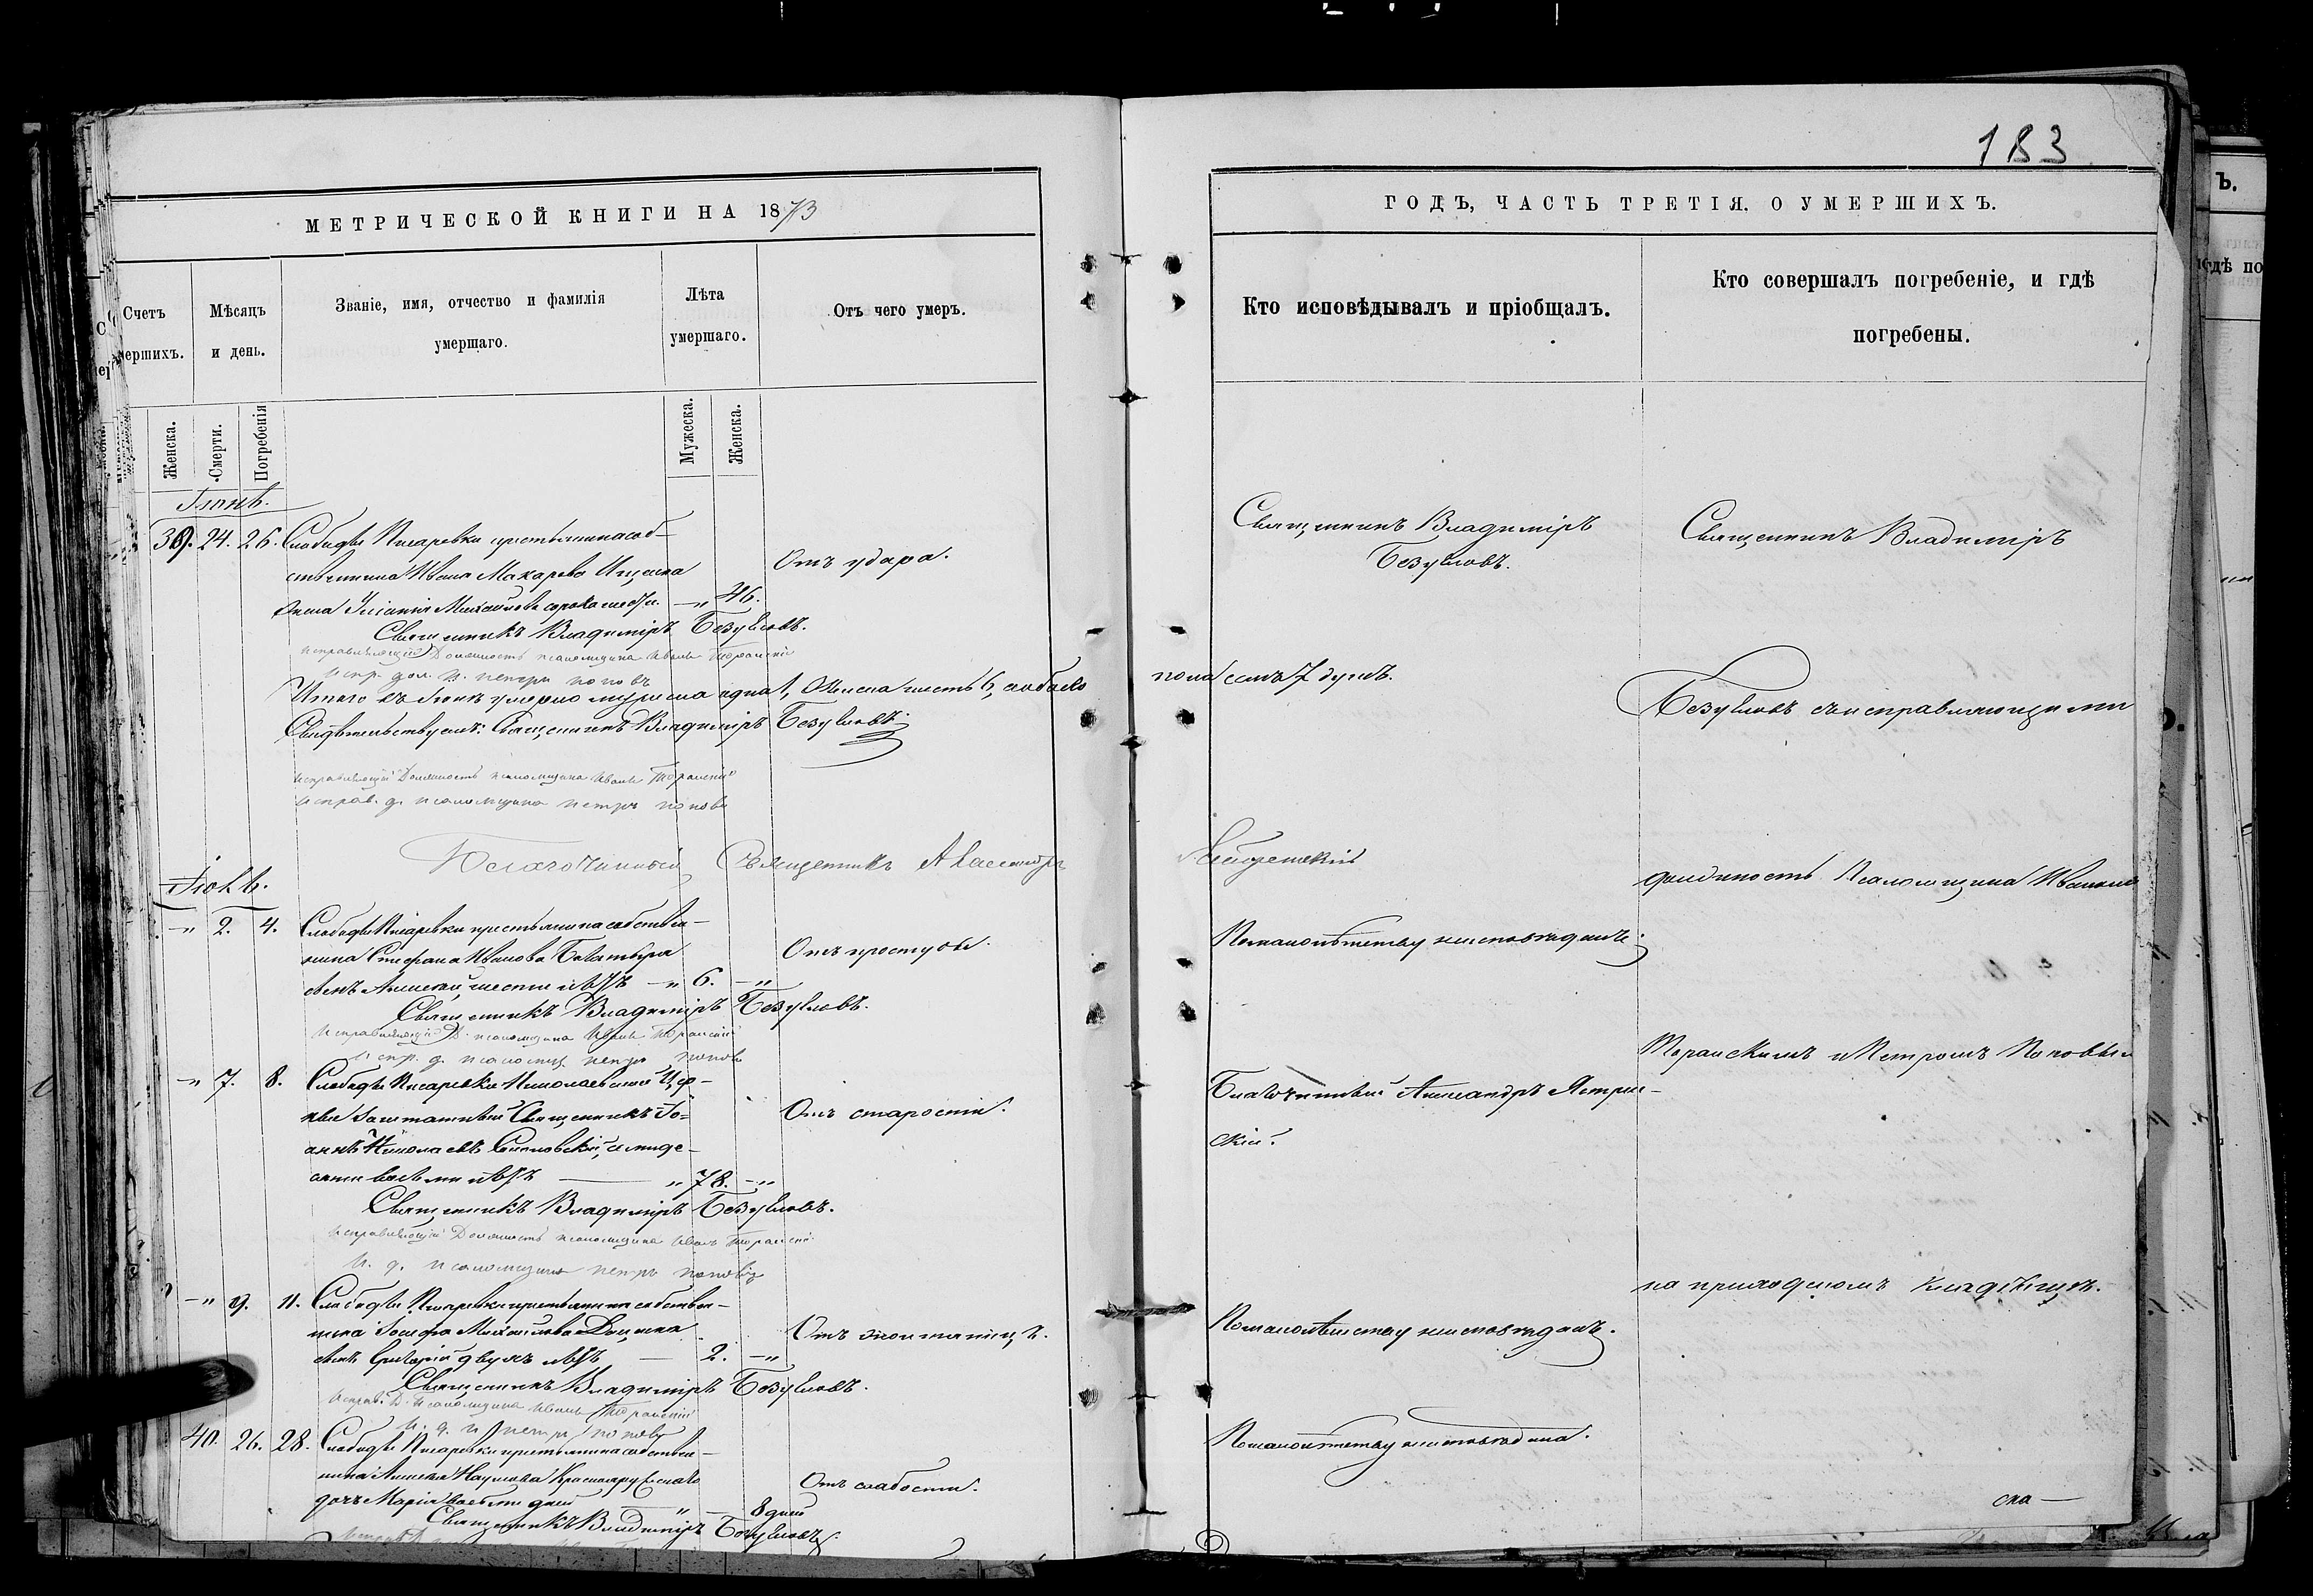 183
МЕТРИЧЕСКОЙ КНИГИ НА 1873
Счетъ
мершихъ.
Мѣсяцъ
и день.
Званіе, имя, отчество и фамилія
умершаго.
Лѣта
умершаго.
Отъ чего умеръ.
Женска.
Смерти.
Погребенія
Мужеска.
Женска.
Іюнь.
39. 24. 26. Слободы Писаревки крестьянина соб-
ственника Ивана Макарова
жена Михайлова сорока шести. —„ 46.
Отъ удара.
Священникъ Владиміръ Безугловъ.
Исправляющій Должность псаломщика Иванъ Торанскій
Испр. дол. п. петръ поповъ
Итого въ Іюнѣ умерло мужеска одна 1, женска шесть 6, а обоего
Свидѣтельствуемъ: Священникъ Владиміръ Безугловъ.
Исправляющій Должность псаломщика Иванъ Торанскій
Исправ. д. псаломщика петръ поповъ
Благочинный Священникъ Александръ
Іюль.
—„ 2. 4. Слободы Писаревки крестьянина собствен-
ника Стефана Иванова
сынъ Алексѣй, шести лѣтъ —„ 6. —„
Отъ простуды.
Священникъ Владиміръ Безугловъ.
Исправляющій Д. псаломщика Иванъ Торанскій
Испр. д. псаломщ. петръ поповъ
—„ 7. 8. Слободы Писаревки Николаевской Цер-
кви Заштатный Священникъ Іо-
аннъ Николаевъ семиде-
сяти восьми лѣтъ „ 78. —„
Отъ старости.
Священникъ Владиміръ Безугловъ.
Исправляющій Должность псаломщика Иванъ Торанскій
И. д. псаломщика петръ поповъ
—„ 9. 11. Слободы Писаревки крестьянина собствен-
ника Іосифа Михайлова
сынъ Григорій двухъ лѣтъ — 2. —„
Священникъ Владиміръ Безугловъ.
Исправ. Д. Псаломщика Иванъ Торанскій
И. д. п. петръ поповъ
40. 26. 28. Слободы Писаревки крестьянина собствен-
ника Алексѣя Наумова
дочь Марія восьми дней „ — 8 дней
Отъ слабости.
Священникъ Владиміръ Безугловъ.
ГОДЪ, ЧАСТЬ ТРЕТІЯ. О УМЕРШИХЪ.
Кто исповѣдывалъ и пріобщалъ.
Кто совершалъ погребеніе, и гдѣ
погребены.
Священникъ Владиміръ
Безугловъ.
пола семь 7 душъ.
По малолѣтству не исповѣданъ.
Благочинный Александръ
скій.
По малолѣтству не исповѣданъ.
По малолѣтству не исповѣдана.
Священникъ Владиміръ
Безугловъ съ исправляющими
должность Псаломщика Иваномъ
Торанскимъ и Петромъ Поповым
на приходскомъ кладбищѣ.
ска —